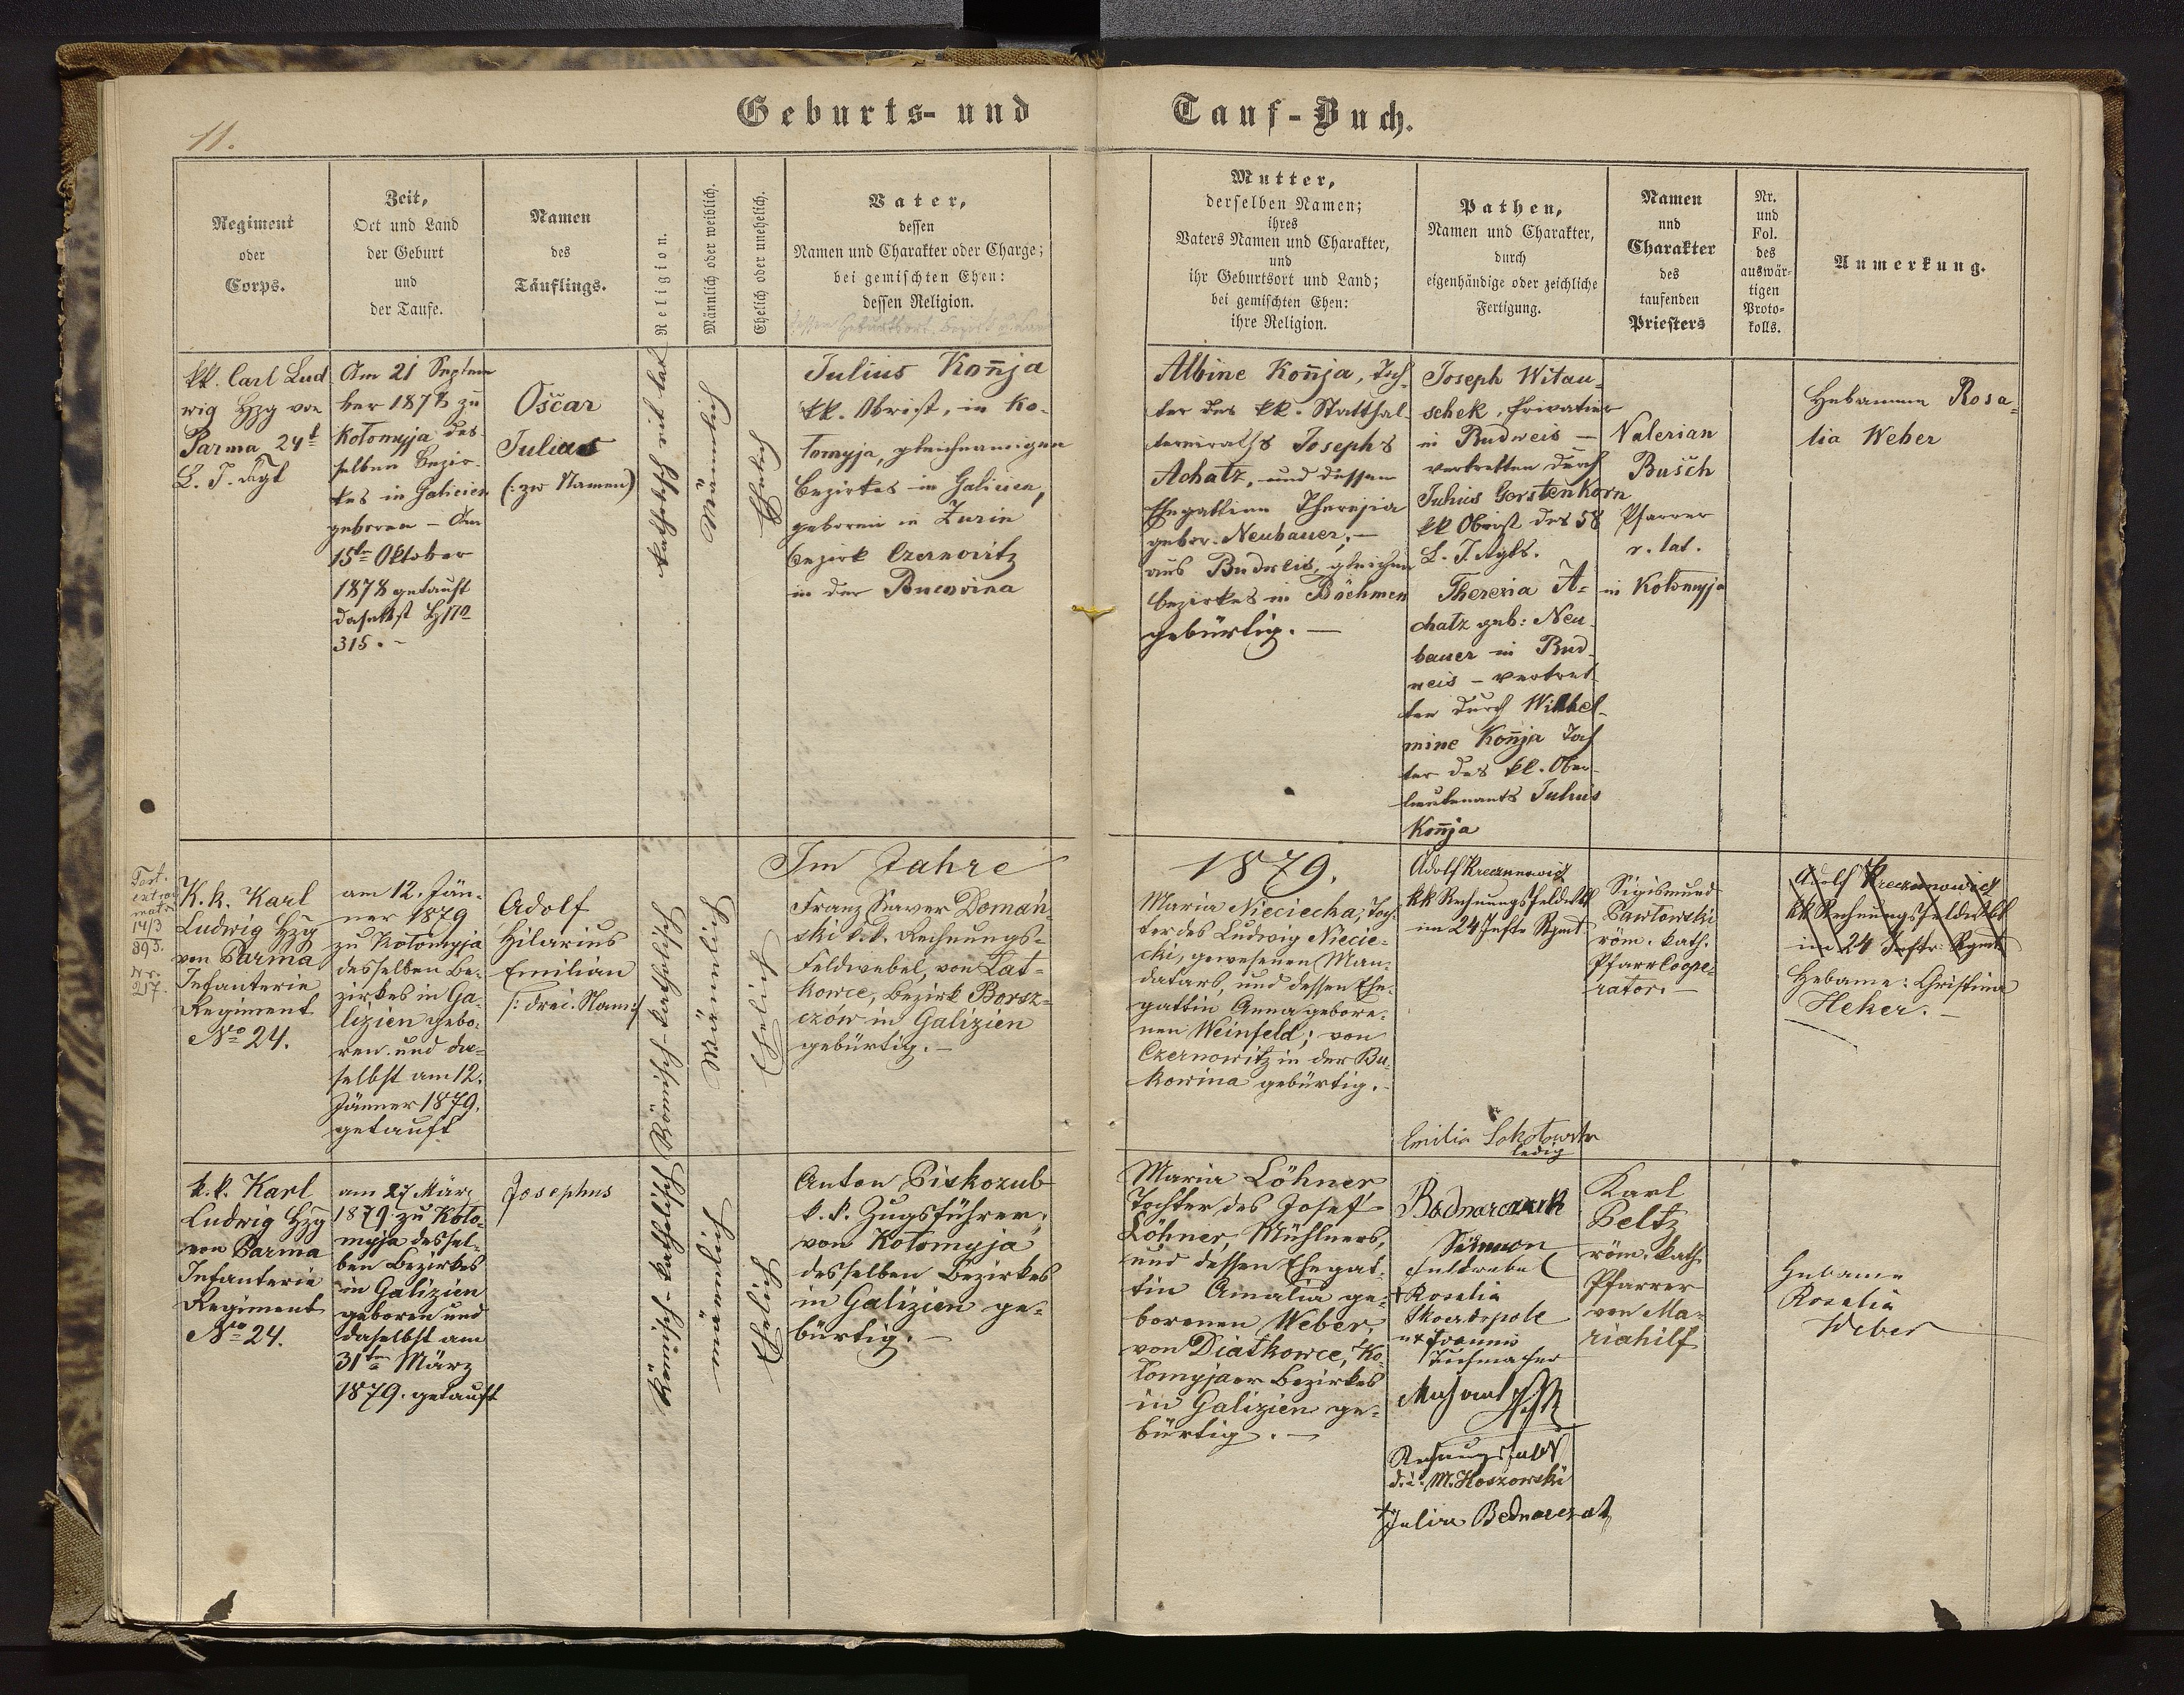 Geburts- und
Tauf-Buch.
11.
Regiment
oder
Corps.
Zeit,
Ort und Land
der Geburt
und
der Taufe.
Namen
des
Täuflings.
Religion.
Männlich oder weiblich.
Ehelich oder unehelich.
Vater,
dessen
Namen und Charakter oder Charge;
bei gemischten Ehen:
dessen Religion.
dessen Geburtsort, Bezirk u. Land
Mutter,
derselben Namen;
ihres
Vaters Namen und Charakter,
und
ihr Geburtsort und Land;
bei gemischten Ehen:
ihre Religion.
Pathen,
Namen und Charakter,
durch
eigenhändige oder zeichliche
Fertigung.
Namen
und
Charakter
des
taufenden
Priesters
Nr.
und
Fol.
des
auswär-
tigen
Proto-
kolls.
Anmerkung.
kk. Carl Lud
wig Hzg von
Parma 24t
L. I. Rgt
Am 21 Septem
ber 1878 zu
Kołomyja des-
selben Bezir-
kes in Galicien
geboren - Am
15ten Oktober
1878 getauft
daselbst HNo
315. -
Oscar
Julius
(: zw Namen)
katholisch rit. lat
Männlich
Ehelich
Julius Kon̄ja
kk. Obrist, in Ko-
łomyja, gleichnamigen
Bezirkes in Galicien,
geboren in Zurin
Bezirk Czernovitz
in der Bucovina
Albine Kon̄ja, Toch-
ter des kk. Statthal-
tereiraths Josephs
Achatz, und dessen
Ehegattinn Theresia
gebor. Neubauer, -
aus Budweis, gleichen
Bezirkes in Böehmen
gebürtig. -
Joseph Witau-
schek, Privatier
in Budweis -
vertretten durch
Julius Gerstenkorn
kk Obrist des 58
L. I. Rgts.
Theresia A-
chatz geb: Neu-
bauer in Bud-
weis - vertret-
ten durch Wilhel-
mine Kon̄ja Toch
ter des kk. Ober-
lieutenants Julius
Kon̄ja
Valerian
Busch
Pfarrer
r. lat.
in Kołomyja
Hebamme Rosa-
lia Weber
Im Jahre
1879.
Test.
extrad
matri
14/3
893.
Nr.
217.
K. k. Karl
Ludwig Hzg
von Parma
Infanterie
Regiment
No 24.
am 12. Jän-
ner 1879
zu Kołomyja
desselben Be-
zirkes in Ga-
lizien gebo-
ren und da-
selbst am 12.
Jänner 1879.
getauft
Adolf
Hilarius
Emilian
/: drei Nam :/
Römisch-katholisch
Männlich
Ehelich
Franz Xaver Domań-
ski k. k. Rechnungs-
Feldwebel, von Łat-
kowce, Bezirk Borsz-
czów in Galizien
gebürtig. -
Maria Nieciecka; Toch-
ter des Ludwig Niecie-
cki, gewesenen Man-
datars, und dessen Ehe-
gattin Anna gebore-
nen Weinfeld; von
Czernowitz in der Bu-
kowina gebürtig. -
Adolf
kk Rechnungsfeldwbl
im 24 Inftr Rgmt
Emilia
ledig
Sigismund
Pawłowski
röm. kath.
Pfarr Coope-
rator. -
Adolf
kk Rechnungsfeldwbl
im 24 Inftr: Rgmt
Hebame: Christina
Heker. -
k. k. Karl
Ludwig Hzg
von Parma
Infanterie
Regiment
No 24.
am 27 März
1879 zu Koło-
myja dessel-
ben Bezirkes
in Galizien
geboren und
daselbst am
31ten März
1879. getauft
Josephus
Römisch-katholisch
männlich
Ehelich
Anton Piskozub
k. k. Zugsführer;
von Kołomyja
desselben Bezirkes
in Galizien ge-
bürtig. -
Maria Löhner
Tochter des Josef
Löhner, Mühlners,
und dessen Ehegat-
tin Amalia ge-
borenen Weber,
von Diatkowce, Ko-
łomyjaer Bezirkes
in Galizien ge-
bürtig. -
Bednarczuk
Simeon
Feldwebel
+ Rosalia
Tuchmacher
d. i. M. Koszowski
+ Julia Bednarczak
Karl
Peltz
röm. kath.
Pfarrer
von Ma-
riahilf
Hebame
Rosalia
Weber